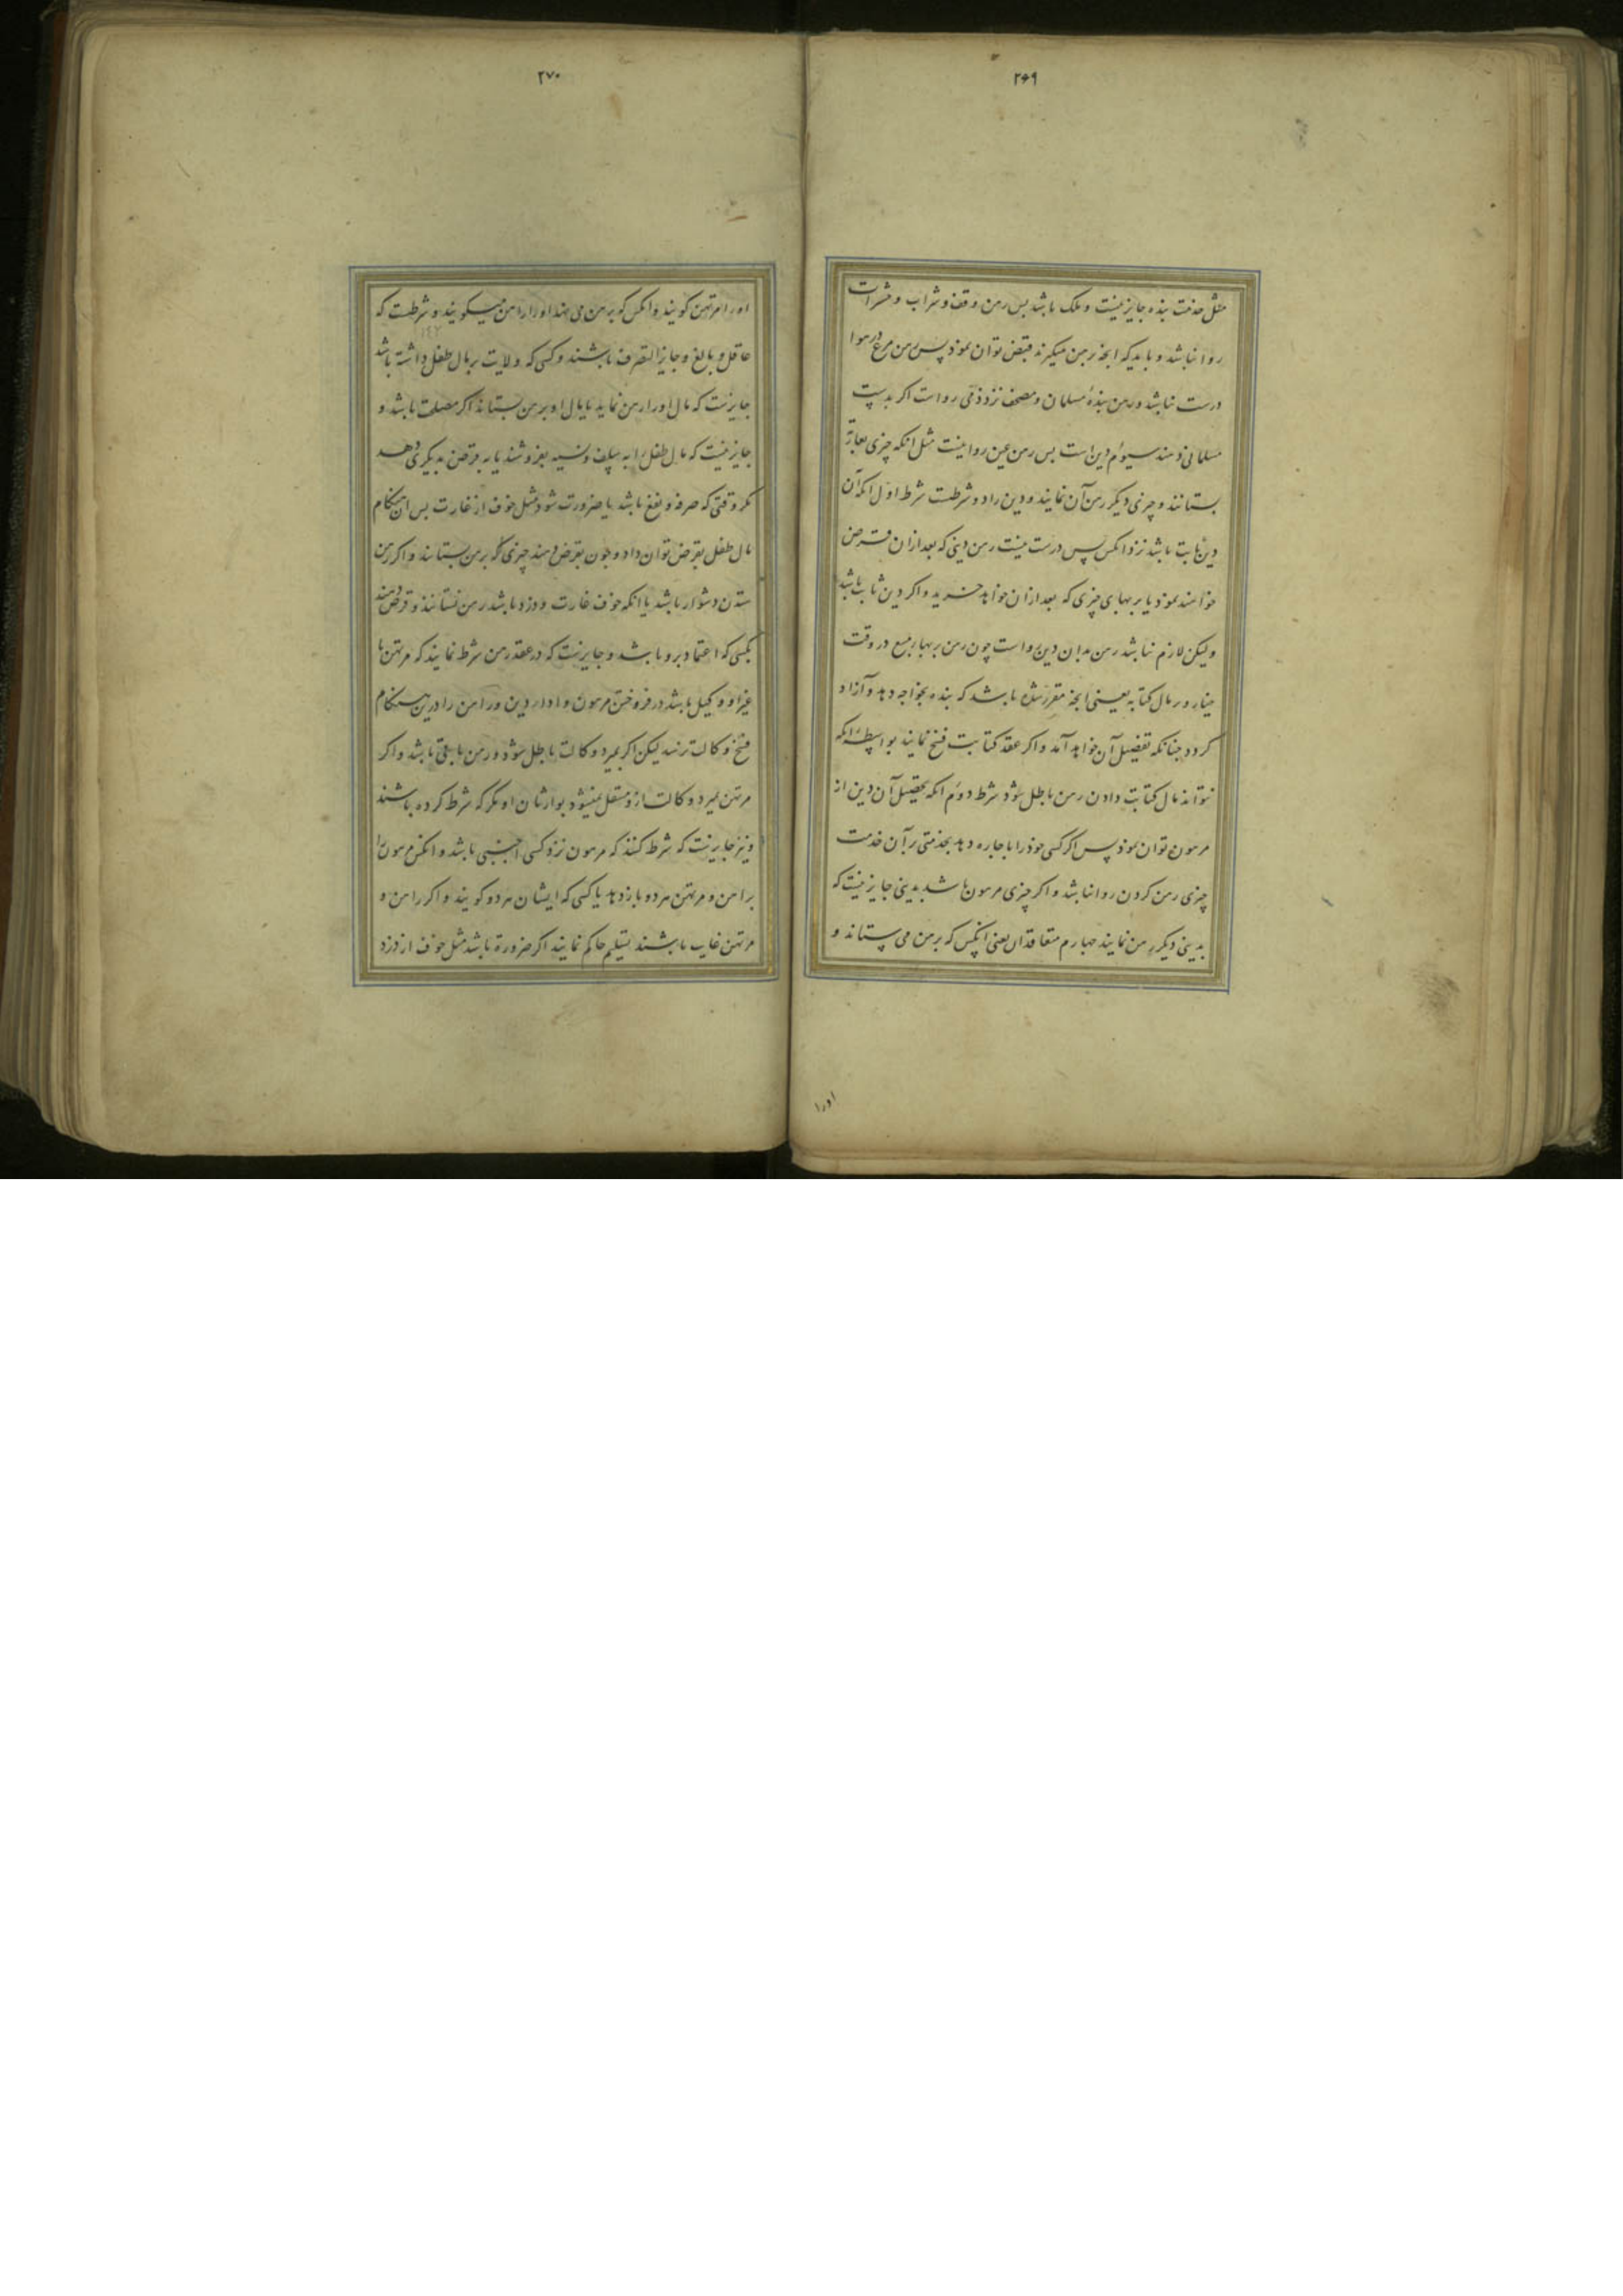 ۲۶۹
مثل خدمت بنده جایز نیست و ملک باشد پس رهن وقف و شراب و حشرات
روا نباشد و باید که انچه رهن میکیرند قبض توان نمود پس رهن مرغ در هوا
درست نباشد و رهن بندهٔ مسلمان و مصحف نزد ذمی رواست اکر بدست
مسلمانی دهند سیوم دین است پس رهن عین روا نیست مثل انکه چیزی بعاریة
بستانند و چیزی دیکر رهن آن نمایند و دین را دو شرطست شرط اول انکه آن
دین ثابت باشد نزد انکس پس درست نیست رهن دینی که بعد ازان قرض
خواهند نمود یا بر بهای چیزی که بعد ازان خواهد خرید و اکر دین ثابت باشد
ولیکن لازم نباشد رهن بدان دین رواست چون رهن بر بهاء مبیع در وقت
خیار و بر مال کتابه یعنی انچه مقرر شده باشد که بنده بخواجه دهد و آزاد
کردد چنانکه تفضیل آن خواهد آمد و اکر عقد کتابت فسخ نمایند بواسطه انکه
نتواند مال کتابت دادن رهن باطل شود شرط دوم انکه تحصیل آن دین از
مرهون توان نمود پس اکر کسی خود را باجاره دهد بخدمتی بر آن خدمت
چیزی رهن کردن روا نباشد و اکر چیزی مرهون باشد بدینی جایز نیست که
بدینی دیکر رهن نمایند چهارم متعاقدان یعنی انکس که برهن می ستاند و
اورا
۲۷۰
اورا مرتهن کویند و انکس که برهن می نهد اورا راهن میکویند و شرطست که
عاقل و بالغ و جایز التصرف باشند و کسی که ولایت بر مال طفل داشته باشد
جایزست که مال اورا رهن نماید یا مال او برهن بستاند اکر مصلحت باشد و
جایز نیست که مال طفل را به سلف و نسیه بفروشند یا به قرض بدیکری دهد
مکر وقتی که صرفه و نفع باشد یا ضرورت شود مثل خوف از غارت پس ان هنکام
مال طفل بقرض توان داد و چون بقرض دهند چیزی که برهن بستانند و اکر رهن
ستدن دشوار باشد یا انکه خوف غارت و دزد باشد رهن نستانند و قرض دهند
بکسی که اعتماد برو باشد و جایزست که در عقد رهن شرط نمایند که مرتهن یا
غیر او وکیل باشد در فروختن مرهون و اداء دین و راهن را درین هنکام
فسخ وکالت نرسد لیکن اکر بمیرد وکالت باطل شود و رهن باقی باشد و اکر
مرتهن بمیرد وکالت ازو منتقل نمیشود بوارثان او مکر که شرط کرده باشند
و نیز جایزست که شرط کنند که مرهون نزد کسی اجنبی باشد و انکس مرهون را
براهن و مرتهن هر دو باز دهد یا کسی که ایشان هر دو کویند و اکر راهن و
مرتهن غایب باشند تسلیم حاکم نمایند اکر ضرورة باشد مثل خوف از دزد